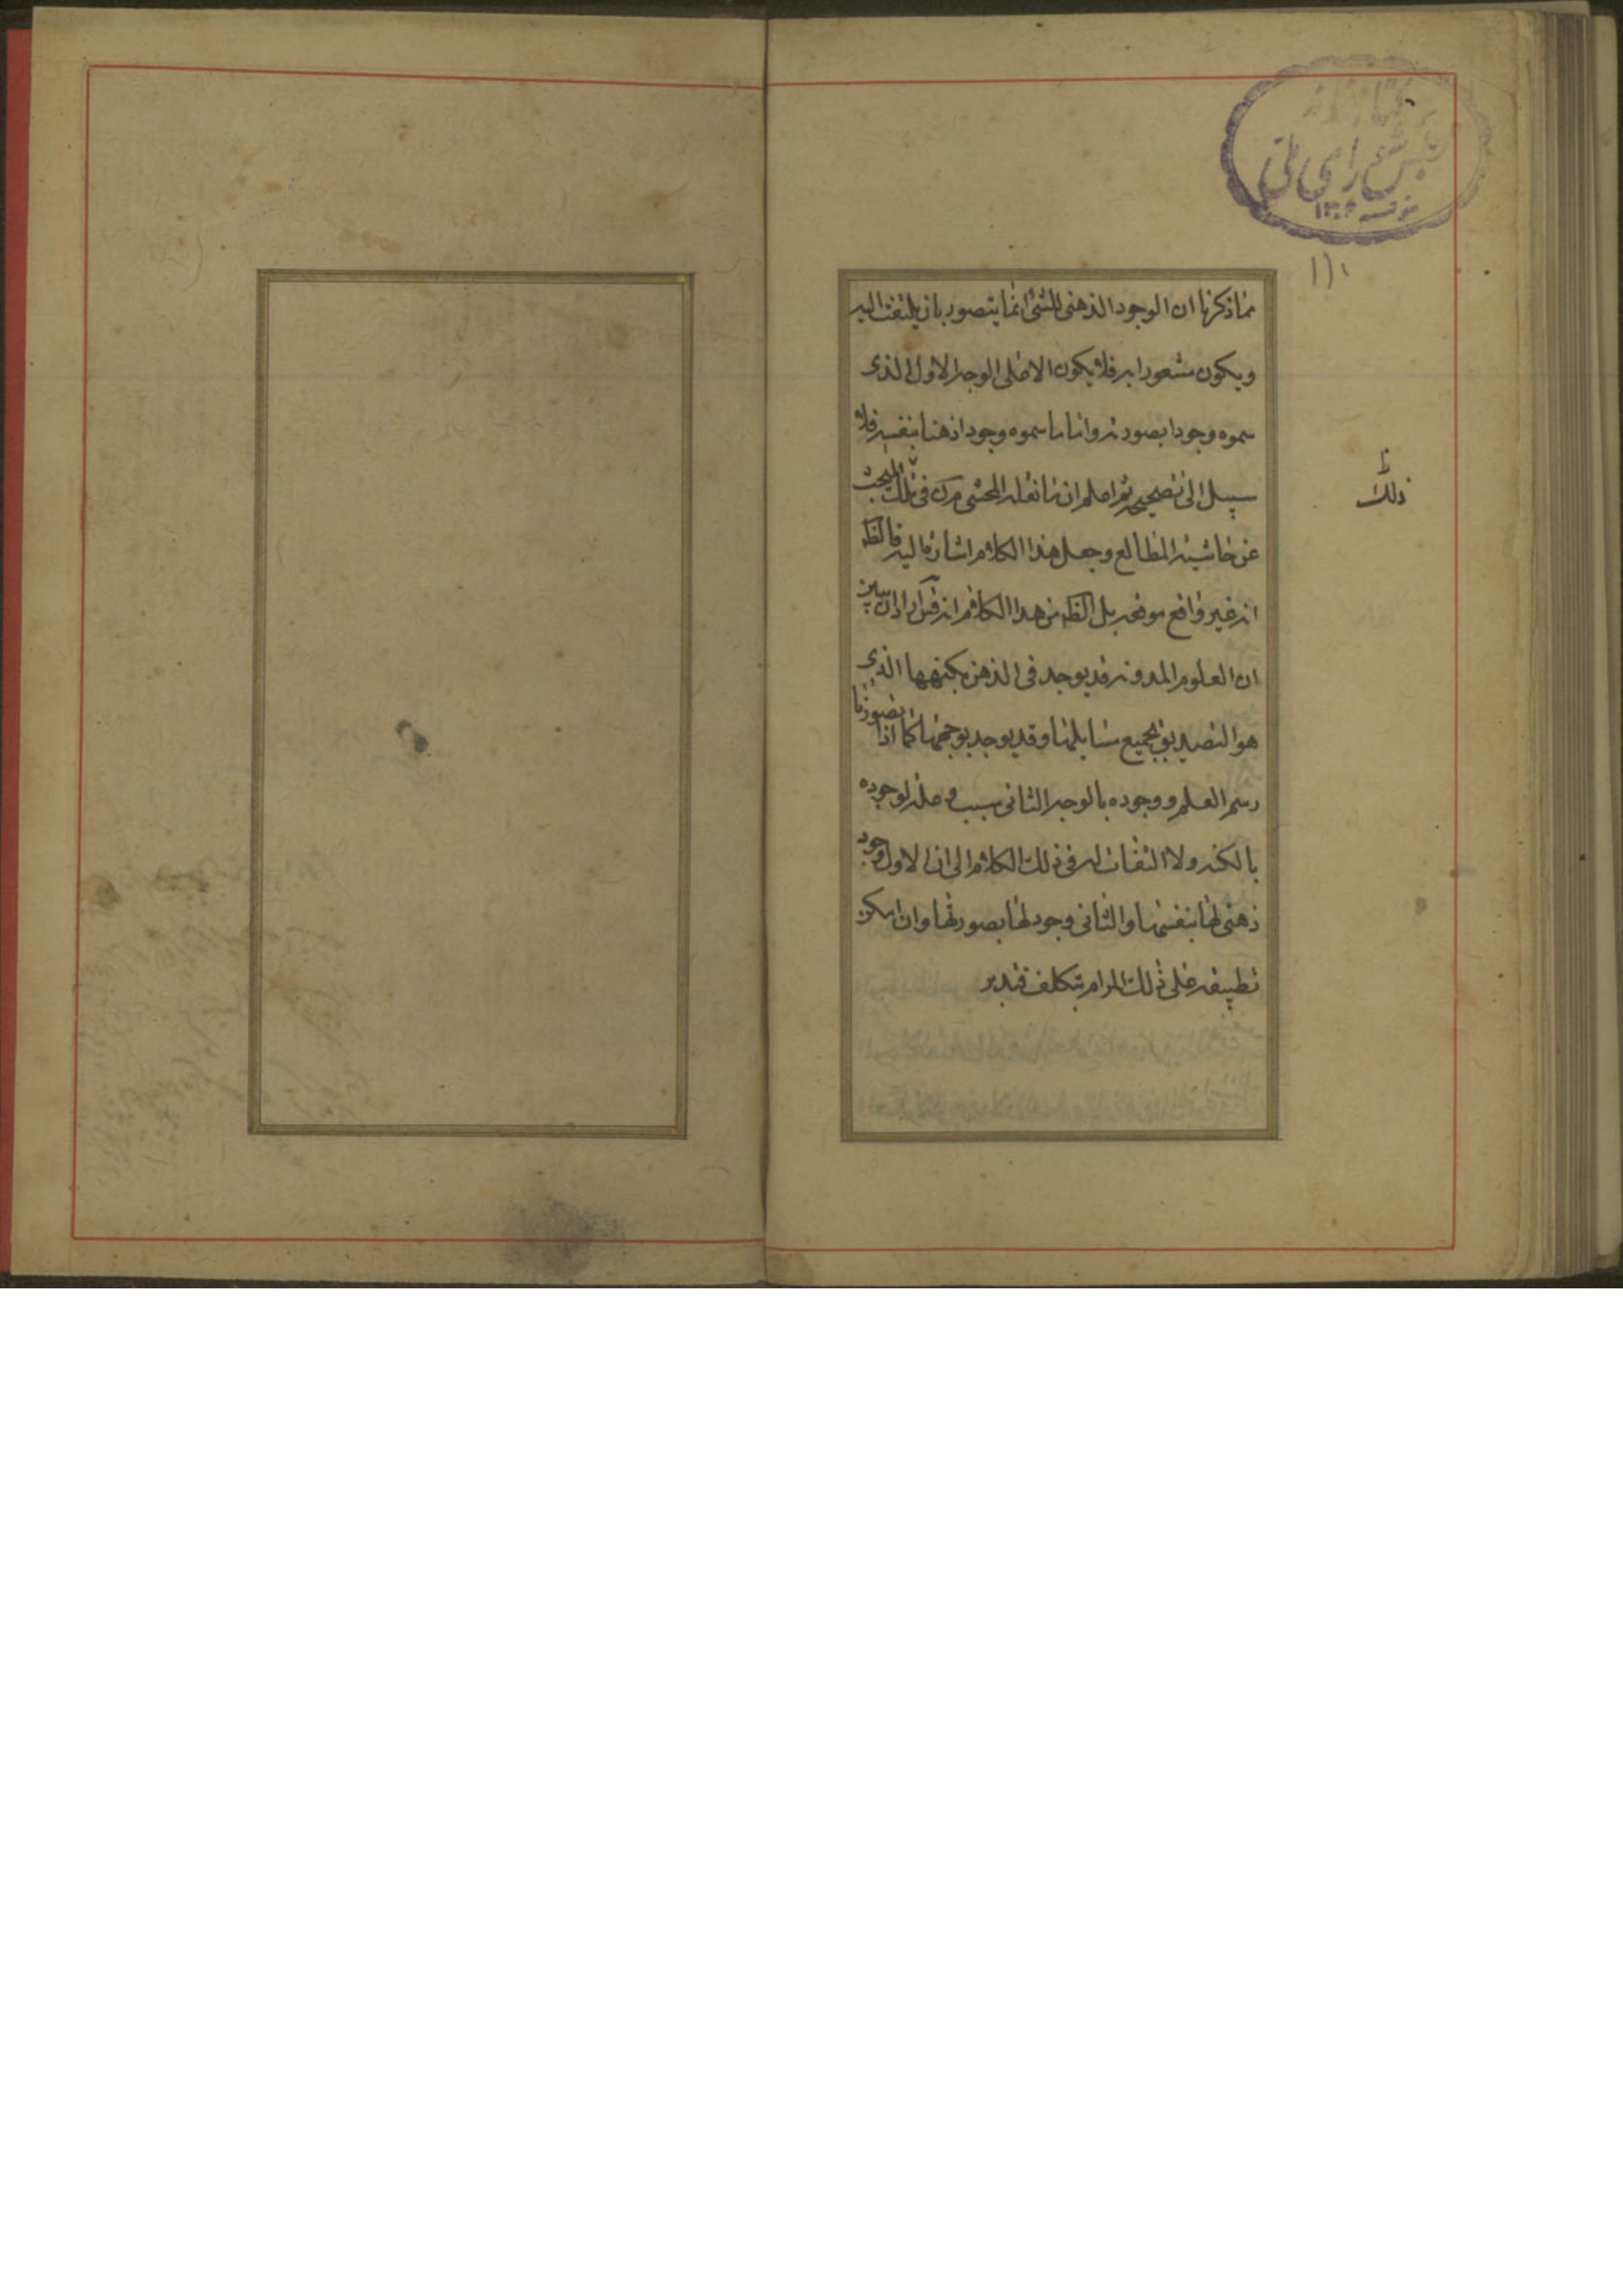 کتابخانه
مجلس شورای ملی
۱۳۰۲
۱۱۱
مما ذکرنا ان الوجود الذهنی للشئ انما یتصور بان یلتفت الیه
ویکون مشعورا به فلا یکون الا علی الوجه الاول الذی
سموه وجودا بصورته واما ما سموه وجودا ذهنیا بنفسه فلا
سبیل الی تصحیحه ثم اعلم ان ما نقله المحشی فی تلک المبحث
عن حاشیة المطالع وجعل هذا الکلام اشارة الیه فالظ
انه غیر واقع موقعه بل الظ من هذا الکلام انه قس اراد ان یبین
ان العلوم المدونه قد یوجد فی الذهن بکنهها الذی
هو التصدیق بجمیع مسایلها وقد یوجد بوجهها کما اذا تصورنا
رسم العلم ووجوده بالوجه الثانی سبب وعلة لوجوده
بالکنه ولا التفات له فی ذلک الکلام الی ان الاول وجود
ذهنی لها بنفسها والثانی وجود لها بصورتها وان امکن
تطبیقه علی ذلک المرام بتکلف فتدبر
ذلک